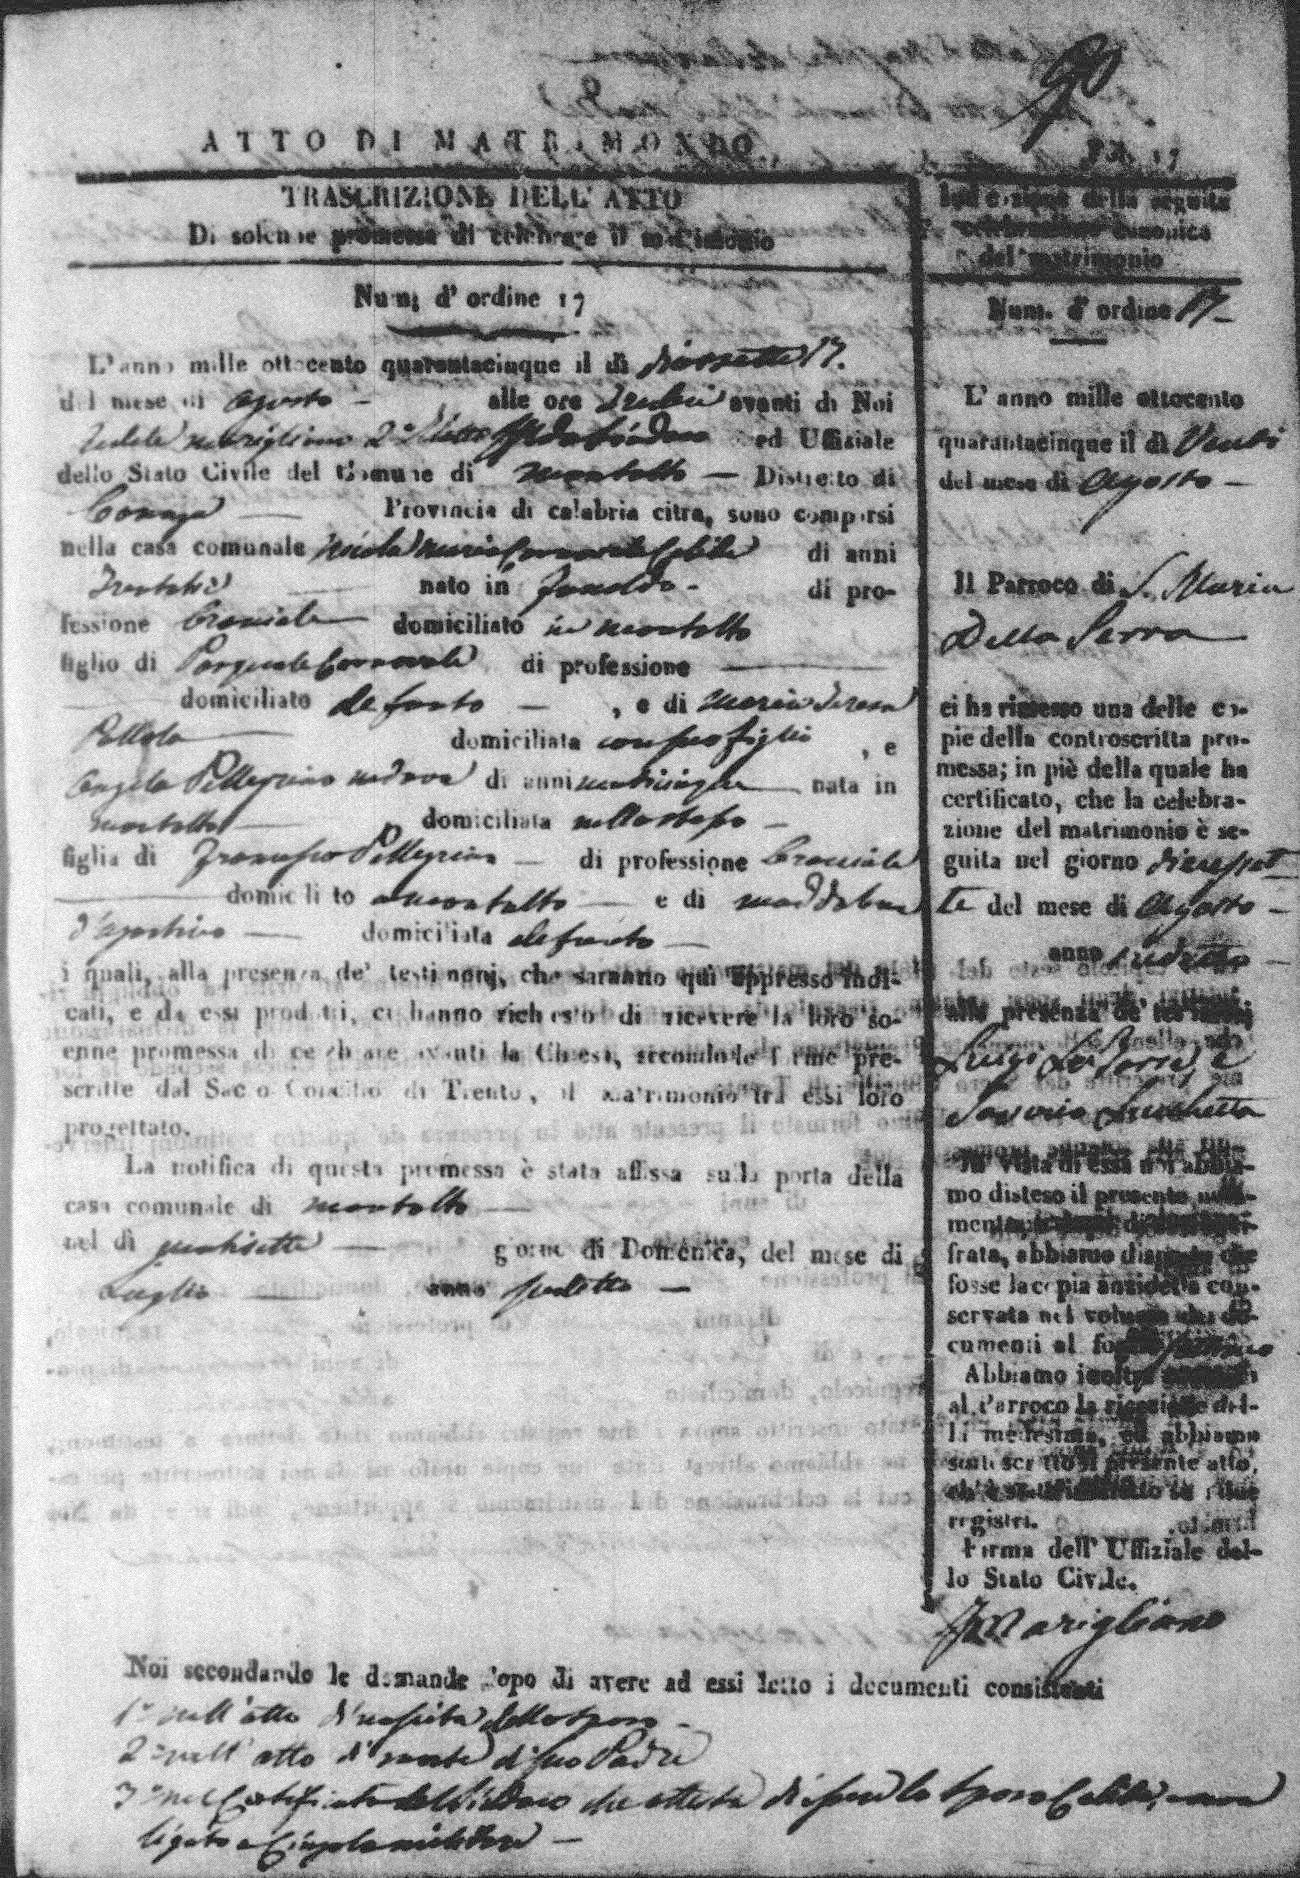 90
ATTO DI MATRIMONIO
17
TRASCRIZIONE DELL' ATTO
Di solenne promessa di celebrare il matrimonio
Num. d' ordine 17
L'anno mille ottocento quarantacinque il dì diassette 17.
del mese di Agosto - alle ore avanti di Noi
Marigliano 2° ed Uffiziale
dello Stato Civile del Comune di Montalto - Distretto di
Cosenza Provincia di calabria citra, sono comparsi
nella casa comunale Nicola Maria Carnevale Celibe di anni
nato in - di pro-
fessione Bracciale domiciliato in Montalto
figlio di Pasquale Carnevale di professione
domiciliato defunto - , e di Maria Teresa
domiciliata con suo figlio , e
Angela Pellegrino vedova di anni venticinque nata in
Montalto domiciliata nella stessa -
figlia di Francesco Pellegrino - di professione Bracciale
domiciliato a Montalto - e di Maddalena
d'Agostino - domiciliata defunta -
i quali, alla presenza de' testimonj, che saranno qui appresso indi-
cati, e da essi prodotti, ci hanno richiesto di ricevere la loro so-
enne promessa di celebrare avanti la Chiesa, secondo le forme pre-
scritte dal Sacro Concilio di Trento, il matrimonio tra essi loro
progettato.
La notifica di questa promessa è stata affissa sulla porta della
casa comunale di Montalto
nel dì ventisette - giorno di Domenica, del mese di
Luglio anno sudetto -
Indicazione della seguita
celebrazione canonica
del matrimonio
Num. d' ordine 17 -
L' anno mille ottocento
quarantacinque il dì Venti
del mese di Agosto -
Il Parroco di S. Maria
Della Serra
ci ha rimesso una delle co-
pie della controscritta pro-
messa; in piè della quale ha
certificato, che la celebra-
zione del matrimonio è se-
guita nel giorno diciasset
te del mese di Agosto -
anno sudetto -
alla presenza de' testimonj
Luigi e
Saverio
In vista di essa noi abbia-
mo disteso il presente
frata, abbiamo disposto che
fosse la copia anzidetta con-
servata nel volume dei do-
cumenti al foglio
Abbiamo inoltre
al Parroco la ricezione del-
la medesima, ed abbiamo
sottoscritto il presente atto,
ch'è stato inserito su i due
registri.
Firma dell' Uffiziale del-
lo Stato Civile.
Marigliano
Noi secondando le domande dopo di avere ad essi letto i documenti consistenti
1° nell' atto di nascita dello sposo -
2° nell' atto di morte di suo Padre
3° nel Certificato del Sindaco che attesta di essere lo sposo Celibe, e non
ligato a Cingolo militare -